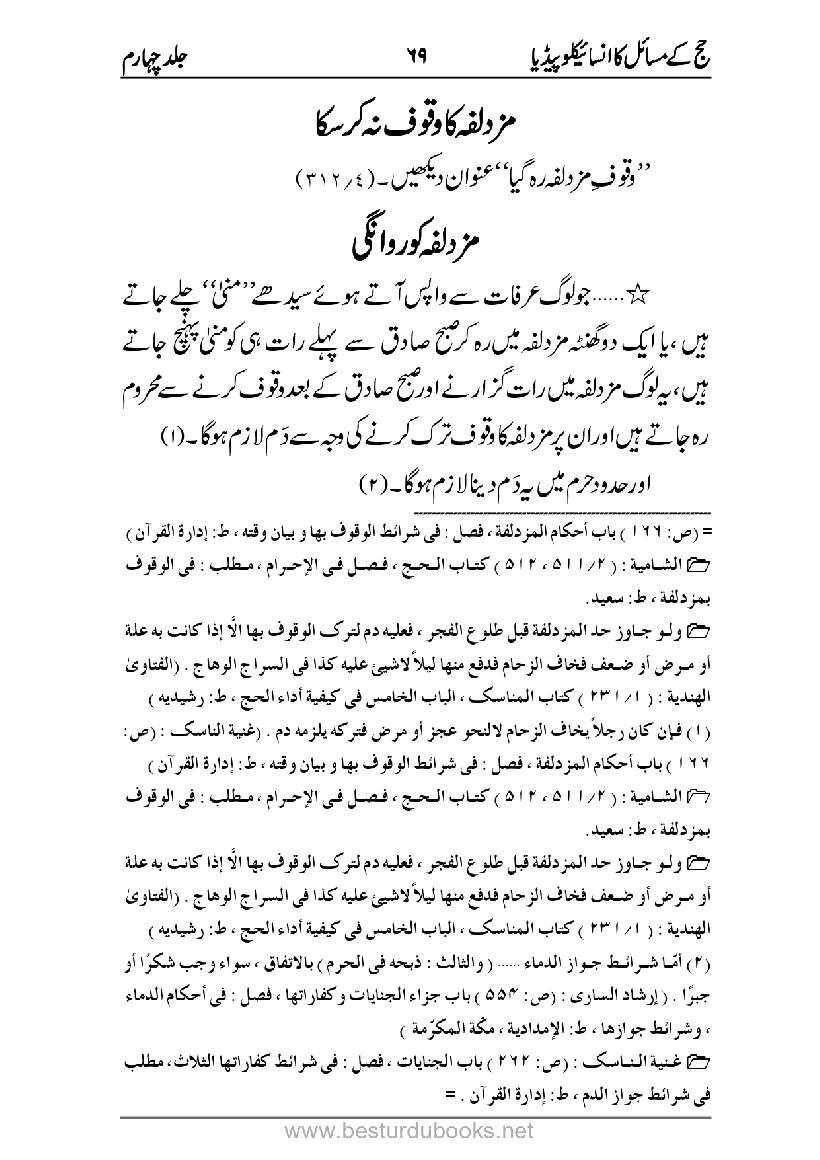 حج کے مسائل کا انسائیکلوپیڈیا ٦٩ جلد چہارم
مزدلفہ کا وقوف نہ کر سکا
’’وقوفِ مزدلفہ رہ گیا‘‘ عنوان دیکھیں۔ (٤/٣١٢)
مزدلفہ کو روانگی
☆......جو لوگ عرفات سے واپس آتے ہوئے سیدھے ’’منیٰ‘‘ چلے جاتے
ہیں، یا ایک دو گھنٹہ مزدلفہ میں رہ کر صبح صادق سے پہلے رات ہی کو منیٰ پہنچ جاتے
ہیں، یہ لوگ مزدلفہ میں رات گزارنے اور صبح صادق کے بعد وقوف کرنے سے محروم
رہ جاتے ہیں اور ان پر مزدلفہ کا وقوف ترک کرنے کی وجہ سے دَم لازم ہوگا۔(١)
اور حدود حرم میں یہ دَم دینا لازم ہوگا۔(٢)
= (ص: ١٦٦) باب أحكام المزدلفة ، فصل : فى شرائط الوقوف بها و بيان وقته ، ط: إدارة القرآن )
الشامية : ( ٥١١/٢ ، ٥١٢ ) كتاب الحج ، فصل فى الإحرام ، مطلب : فى الوقوف
بمزدلفة ، ط: سعيد.
ولو جاوز حد المزدلفة قبل طلوع الفجر ، فعليه دم لترك الوقوف بها الَّا إذا كانت به علة
أو مرض أو ضعف فخاف الزحام فدفع منها ليلاً لاشيئ عليه كذا فى السراج الوهاج . (الفتاوىٰ
الهندية : ( ٢٣١/١ ) كتاب المناسك ، الباب الخامس فى كيفية أداء الحج ، ط: رشيديه )
(١) فإن كان رجلاً يخاف الزحام لالنحو عجز أو مرض فتركه يلزمه دم . (غنية الناسك : (ص:
١٦٦ ) باب أحكام المزدلفة ، فصل : فى شرائط الوقوف بها و بيان وقته ، ط: إدارة القرآن )
الشامية : ( ٥١١/٢ ، ٥١٢ ) كتاب الحج ، فصل فى الإحرام ، مطلب : فى الوقوف
بمزدلفة ، ط: سعيد.
ولو جاوز حد المزدلفة قبل طلوع الفجر ، فعليه دم لترك الوقوف بها الَّا إذا كانت به علة
أو مرض أو ضعف فخاف الزحام فدفع منها ليلاً لاشيئ عليه كذا فى السراج الوهاج . (الفتاوىٰ
الهندية : ( ٢٣١/١ ) كتاب المناسك ، الباب الخامس فى كيفية أداء الحج ، ط: رشيديه )
(٢) أمّا شرائط جواز الدماء ...... ( والثالث : ذبحه فى الحرم ) بالاتفاق ، سواء وجب شكرًا أو
جبرًا . ( إرشاد السارى : (ص: ٥٥٤ ) باب جزاء الجنايات وكفاراتها ، فصل : فى أحكام الدماء
، وشرائط جوازها ، ط: الإمدادية ، مكّة المكرّمة )
غنية الناسك : (ص: ٢٦٢ ) باب الجنايات ، فصل : فى شرائط كفاراتها الثلاث، مطلب
فى شرائط جواز الدم ، ط: إدارة القرآن . =
www.besturdubooks.net